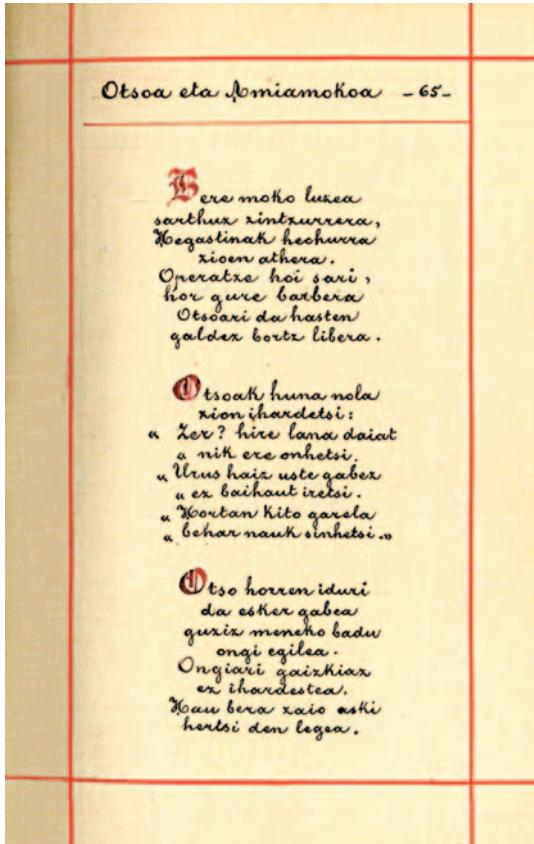 Otsoa eta Amiamokoa - 65 -
Bere moko luzea
sarthuz zintzurrera,
Hegastinak hechurra
zioen athera.
Operatze hoi sari,
hor gure barbera
Otsoari da hasten
galdez bortz libera.
Otsoak huna nola
zion ihardetsi:
« Zer? hire lana daiat
« nik ere onhetsi.
« Urus haiz uste gabez
« ez baihaut iretsi.
« Hortan kito garela
« behar nauk sinhetsi.»
Otso horren iduri
da esker gabea
guziz meneko badu
ongi egilea.
Ongiari gaizkiaz
ez ihardestea.
Hau bera zaio aski
hertsi den legea.